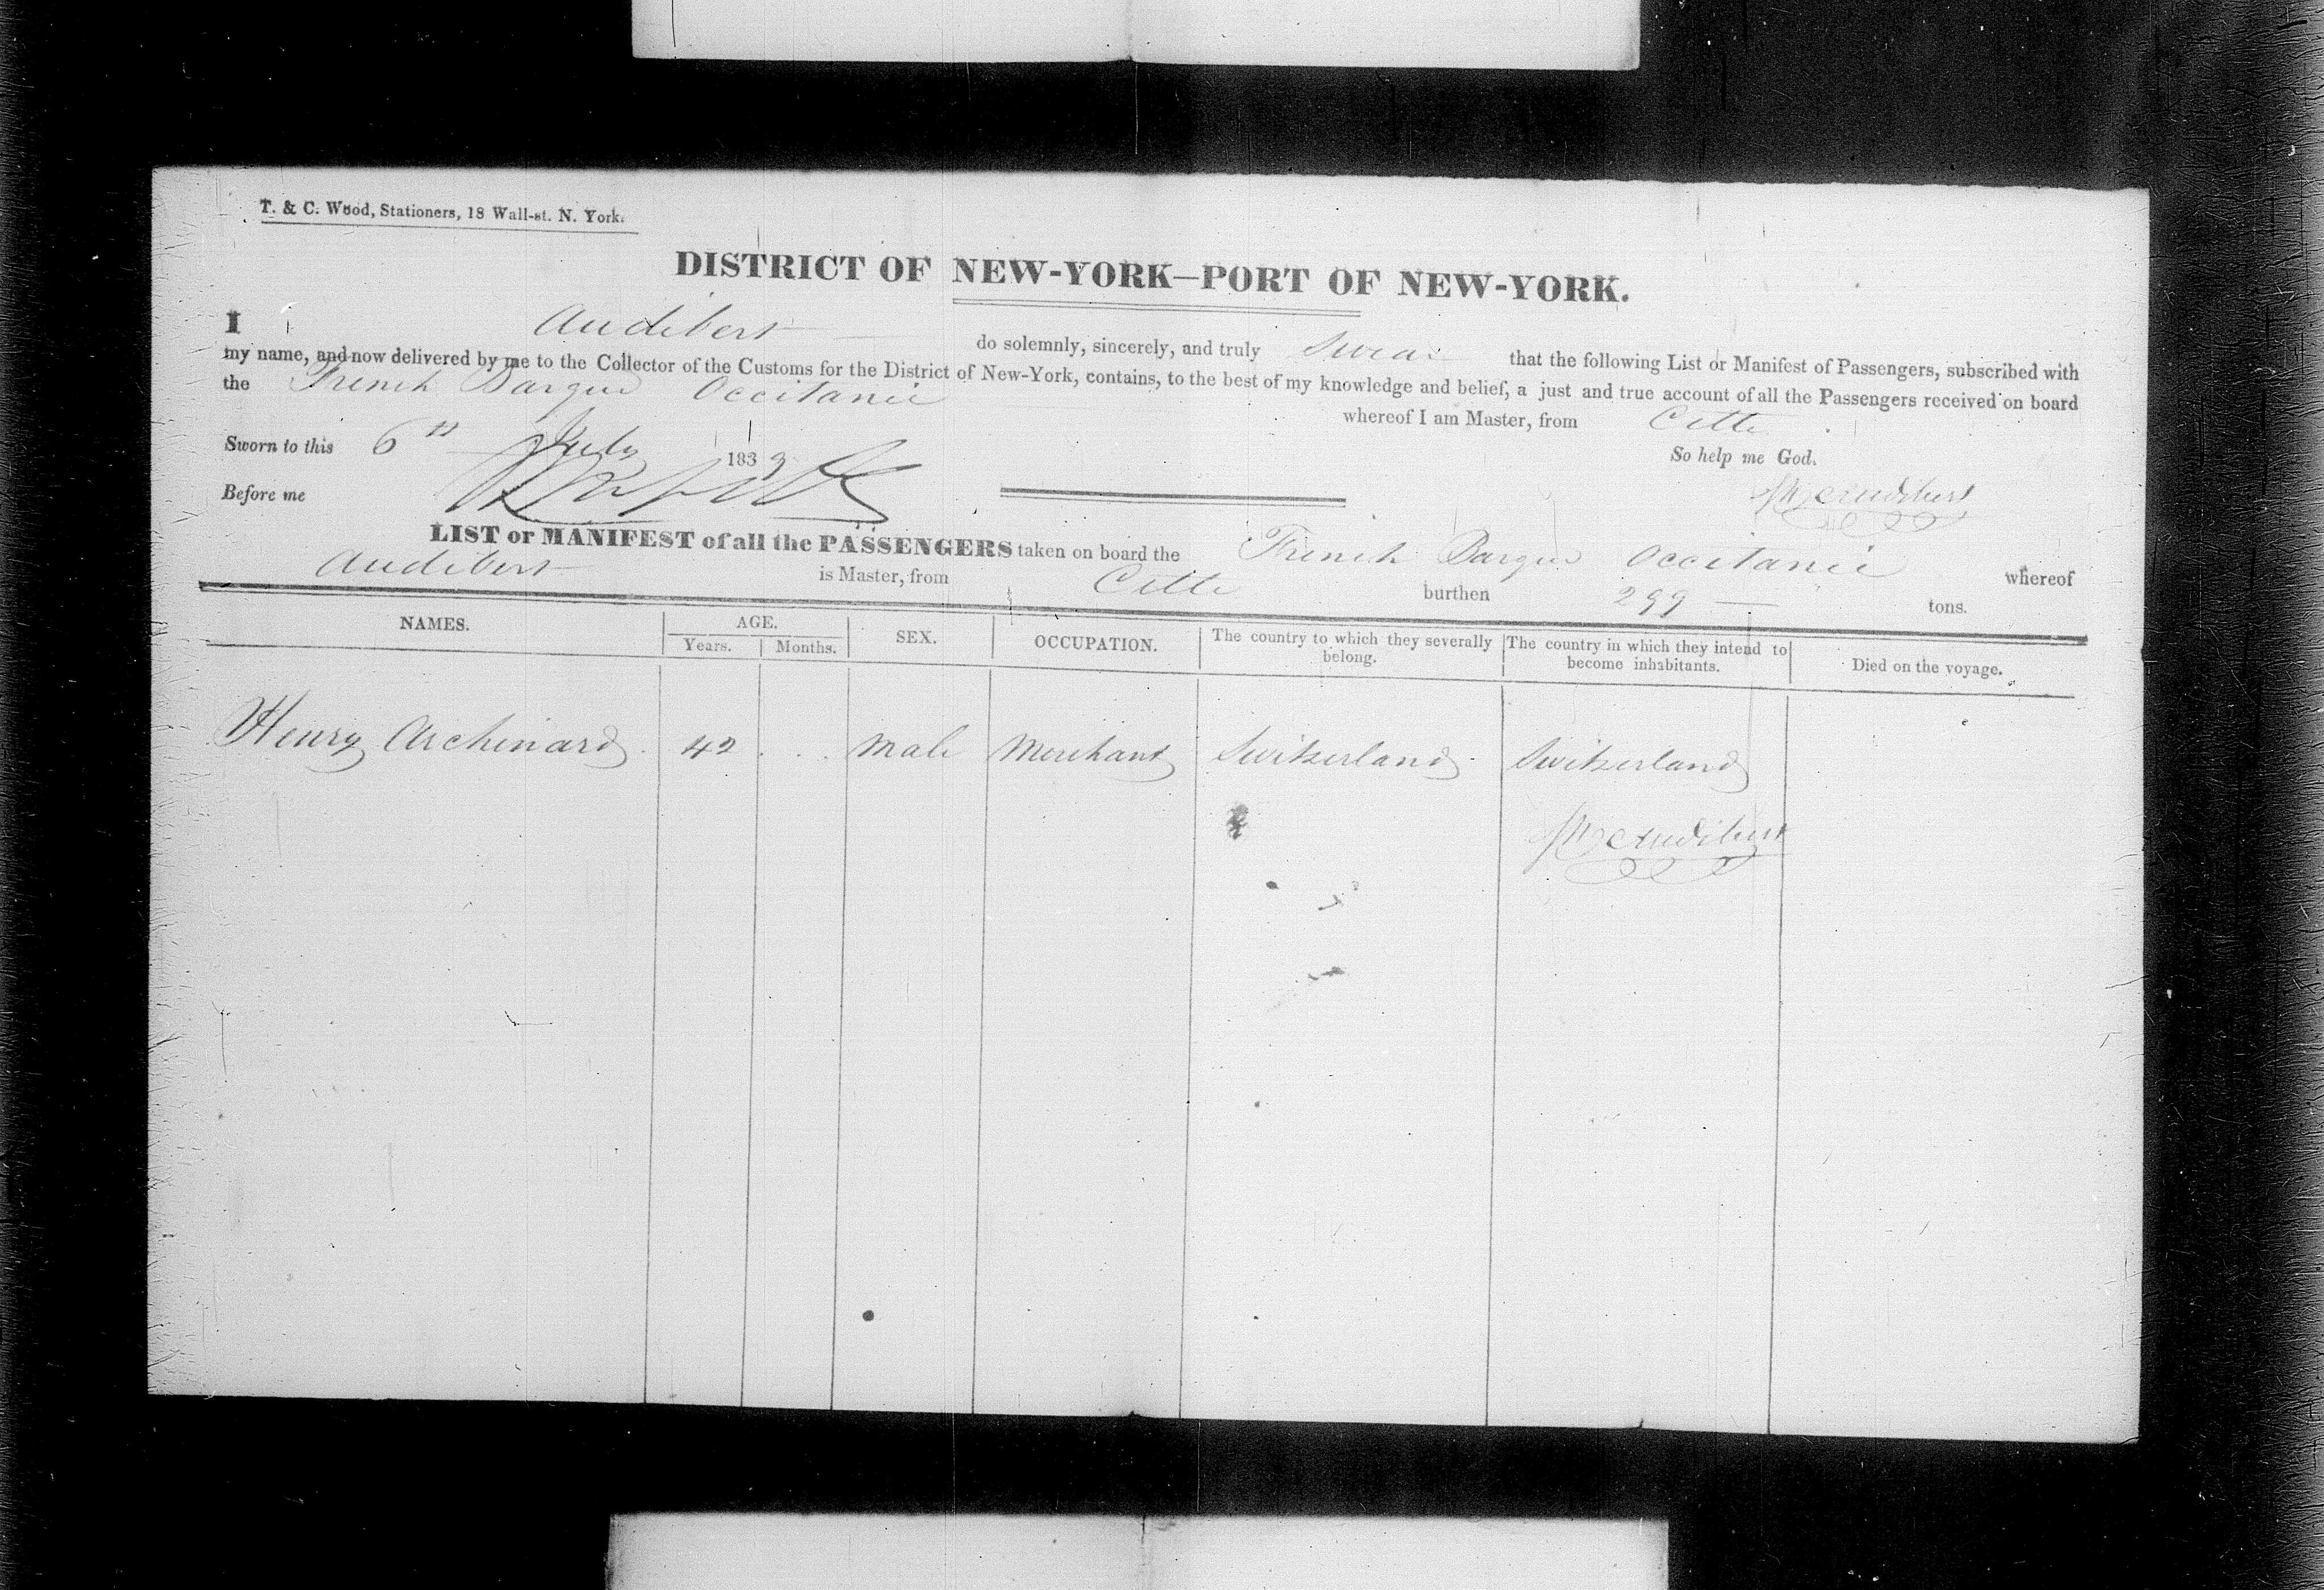 T. & C. Wood, Stationers, 18 Wall-st. N. York.
DISTRICT OF NEW-YORK—PORT OF NEW-YORK.
I Audibert do solemnly, sincerely, and truly swear that the following List or Manifest of Passengers, subscribed with
my name, and now delivered by me to the Collector of the Customs for the District of New-York, contains, to the best of my knowledge and belief, a just and true account of all the Passengers received on board
the French Barque Occitanie whereof I am Master, from Cette.
Sworn to this 6th July 1839 So help me God.
Before me
Audibert
LIST or MANIFEST of all the PASSENGERS taken on board the French Barque Occitanie whereof
Audibert is Master, from Cette burthen 299 tons.
NAMES. AGE. Years. Months. SEX. OCCUPATION. The country to which they severally belong. The country in which they intend to become inhabitants. Died on the voyage.
Henry Archinard 42 . . Male Merchant Switzerland Switzerland
Audibert